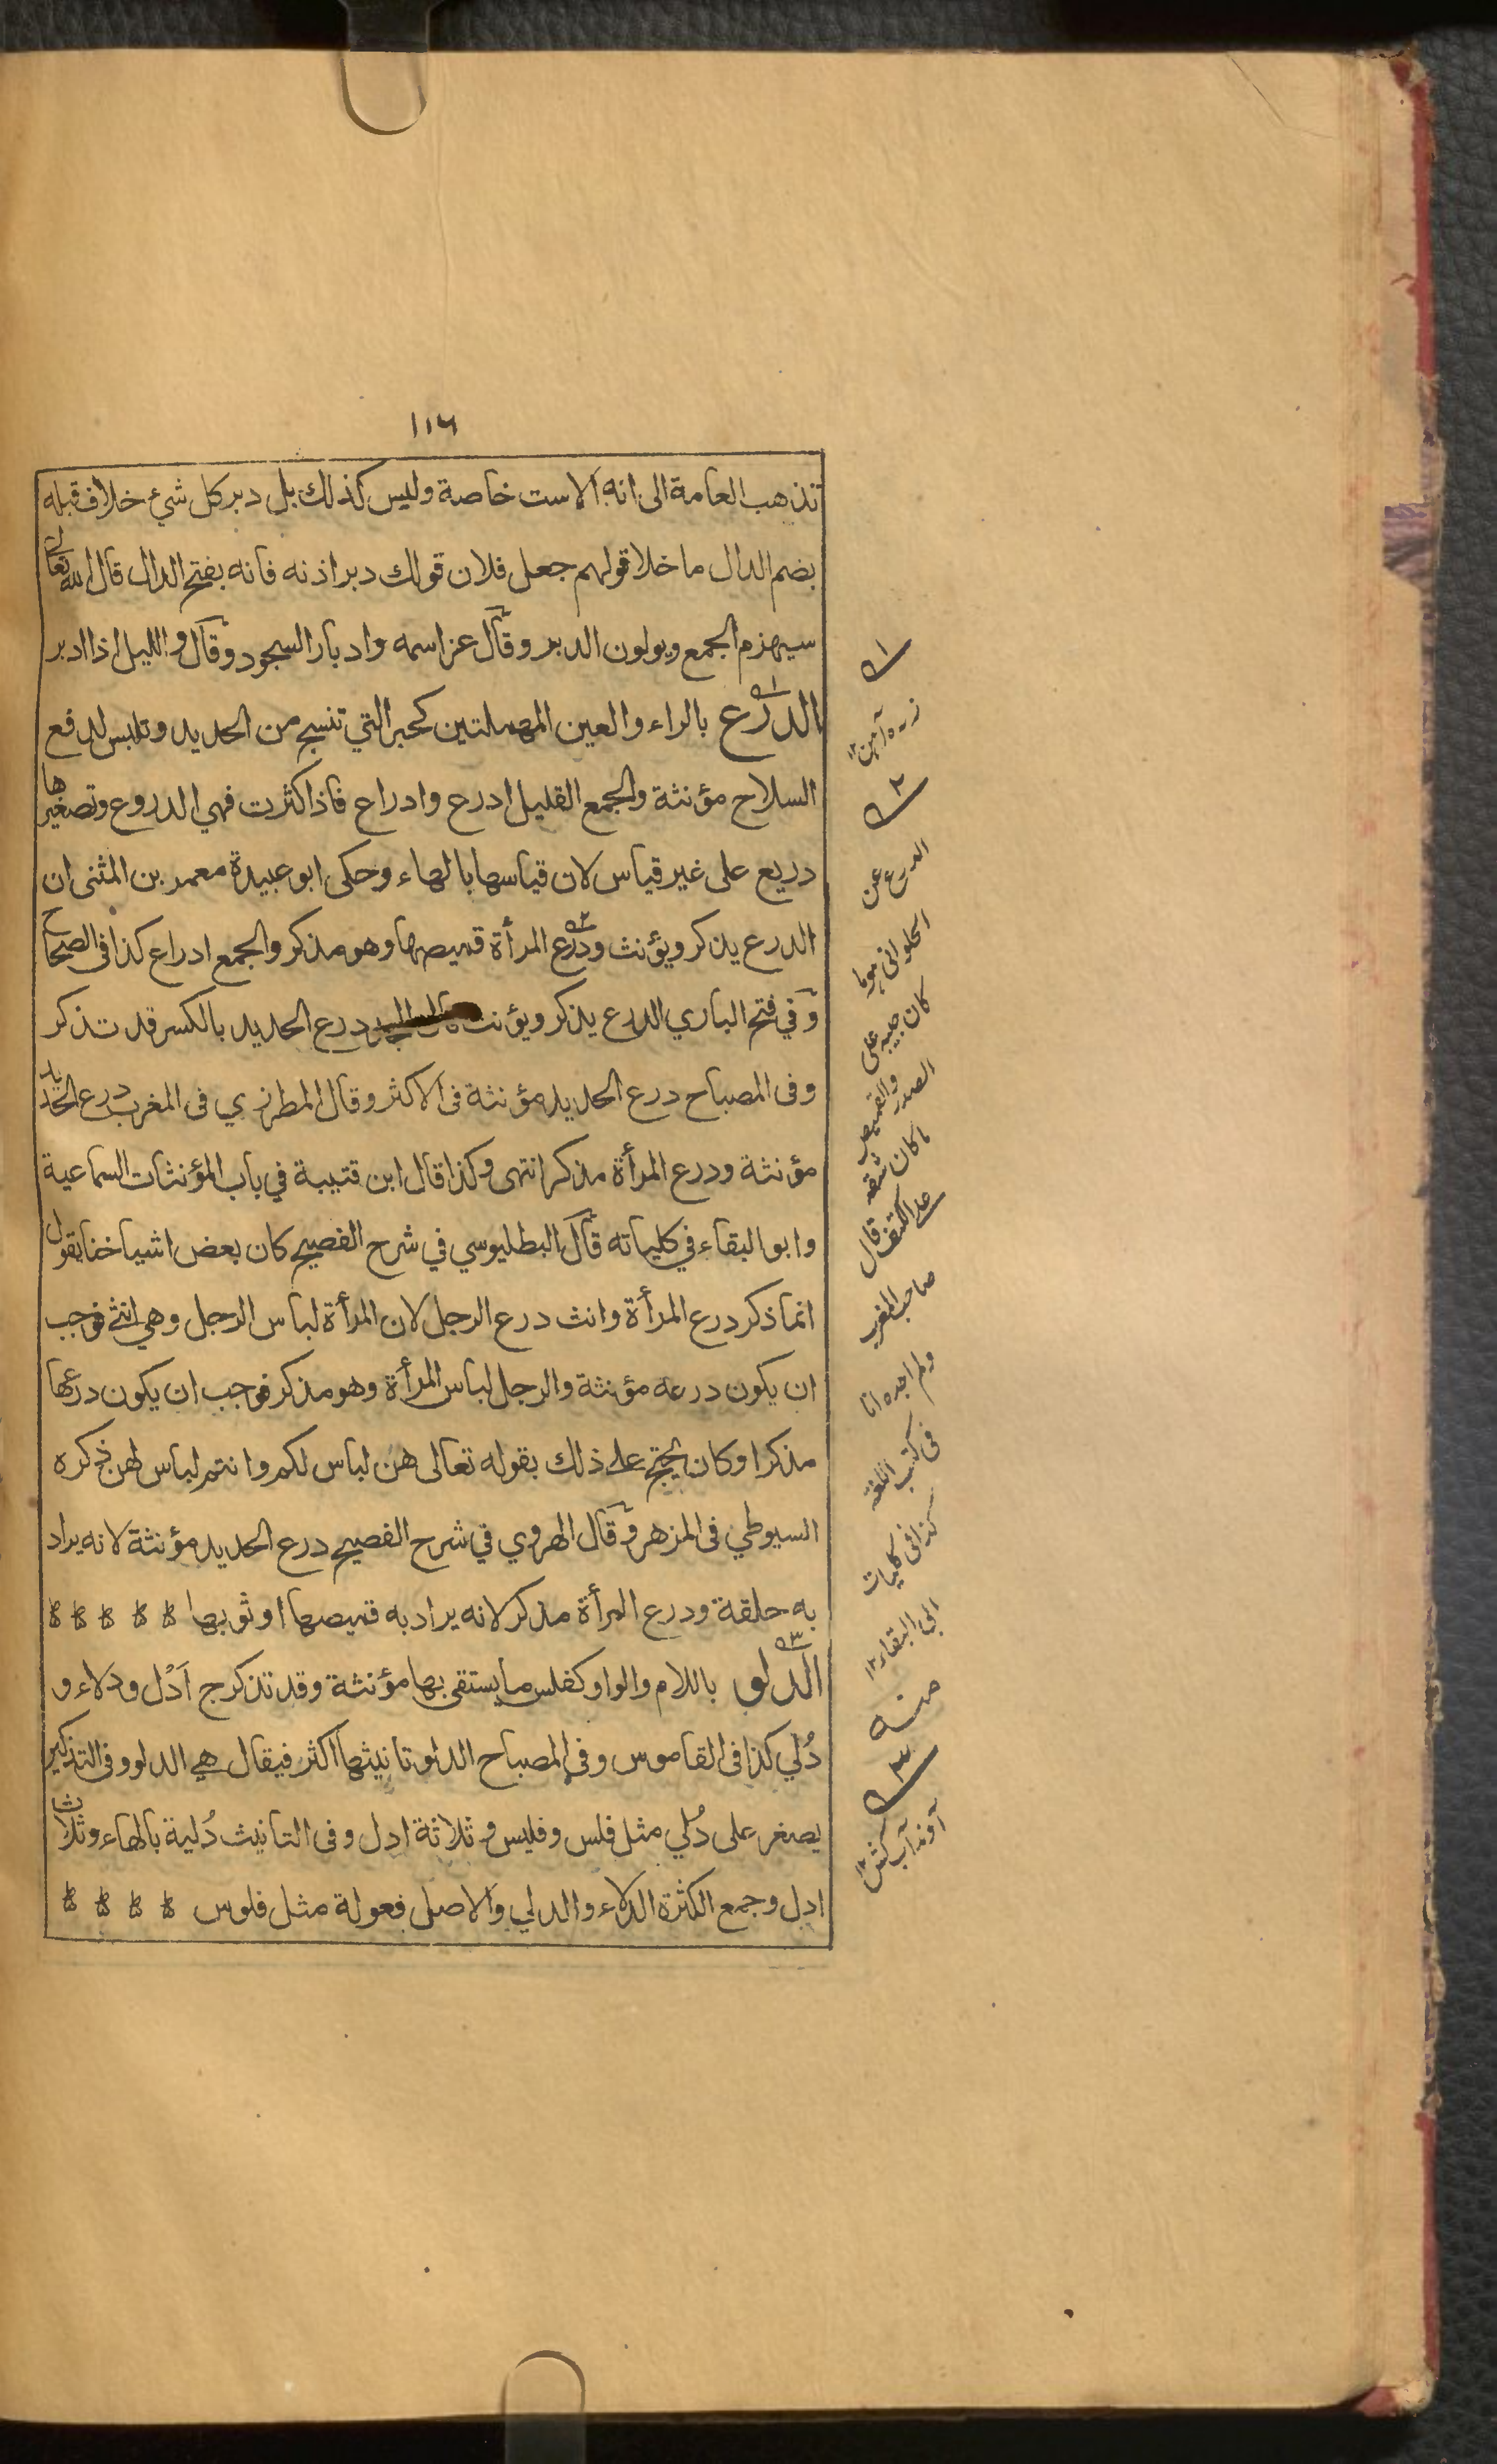 ١١٦
تذهب العامة الى انه الاست خاصة وليس كذلك بل دبر كل شيء خلاف قبله
بضم الدال ما خلا قولهم جعل فلان قولك دبر اذنه فانه بفتح الدال قال الله تعالى
سيهزم الجمع ويولون الدبر وقال عز اسمه وادبار السجود وقال والليل اذا ادبر
الدرع بالراء والعين المهملتين كحبر التي تنسج من الحديد وتلبس لدفع
السلاح مؤنثة والجمع القليل ادرع وادراع فاذا كثرت فهي الدروع وتصغيرها
دريع على غير قياس لان قياسها بالهاء وحكى ابو عبيدة معمر بن المثنى ان
الدرع يذكر ويؤنث ودرع المرأة قميصها وهو مذكر والجمع ادراع كذا في الصحاح
وفي فتح الباري الدرع يذكر ويؤنث درع الحديد بالكسر قد تذكر
وفى المصباح درع الحديد مؤنثة فى الاكثر وقال المطرزي فى المغرب درع الحديد
مؤنثة ودرع المرأة مذكر انتهى وكذا قال ابن قتيبة في باب المؤنثات السماعية
وابو البقاء في كلياته قال البطليوسي في شرح الفصيح كان بعض اشياخنا يقول
انما ذكر درع المرأة وانث درع الرجل لان المرأة لباس الرجل وهي انثى فوجب
ان يكون درعه مؤنثة والرجل لباس المرأة وهو مذكر فوجب ان يكون درعها
مذكرا وكان يحتج على ذلك بقوله تعالى هن لباس لكم وانتم لباس لهن ذكره
السيوطي فى المزهر وقال الهروي في شرح الفصيح درع الحديد مؤنثة لانه يراد
به حلقة ودرع المرأة مذكر لانه يراد به قميصها او ثوبها
الدلو باللام والواو كفلس ما يستقى بها مؤنثة وقد تذكر ج اَدْل ودلاء و
دُلي كذا فى القاموس وفى المصباح الدلو تانيثها اكثر فيقال هي الدلو وفى التذكير
يصغر على دُلي مثل فلس وفليس وثلاثة ادل وفى التانيث دُلية بالهاء وثلاث
ادل وجمع الكثرة الدلاء والدلي والاصل فعولة مثل فلوس
١
زره آهن ١٢
٢
الدرع عن
الحلوانى هو ما
كان جيبه على
الصدر والقميص
ما كان شقه
على الكتف قال
صاحب المغرب
ولم اجده انا
فى كتب اللغة
كذا فى كليات
ابى البقاء ١٢
منه
٣
آوند آب كش ١٢